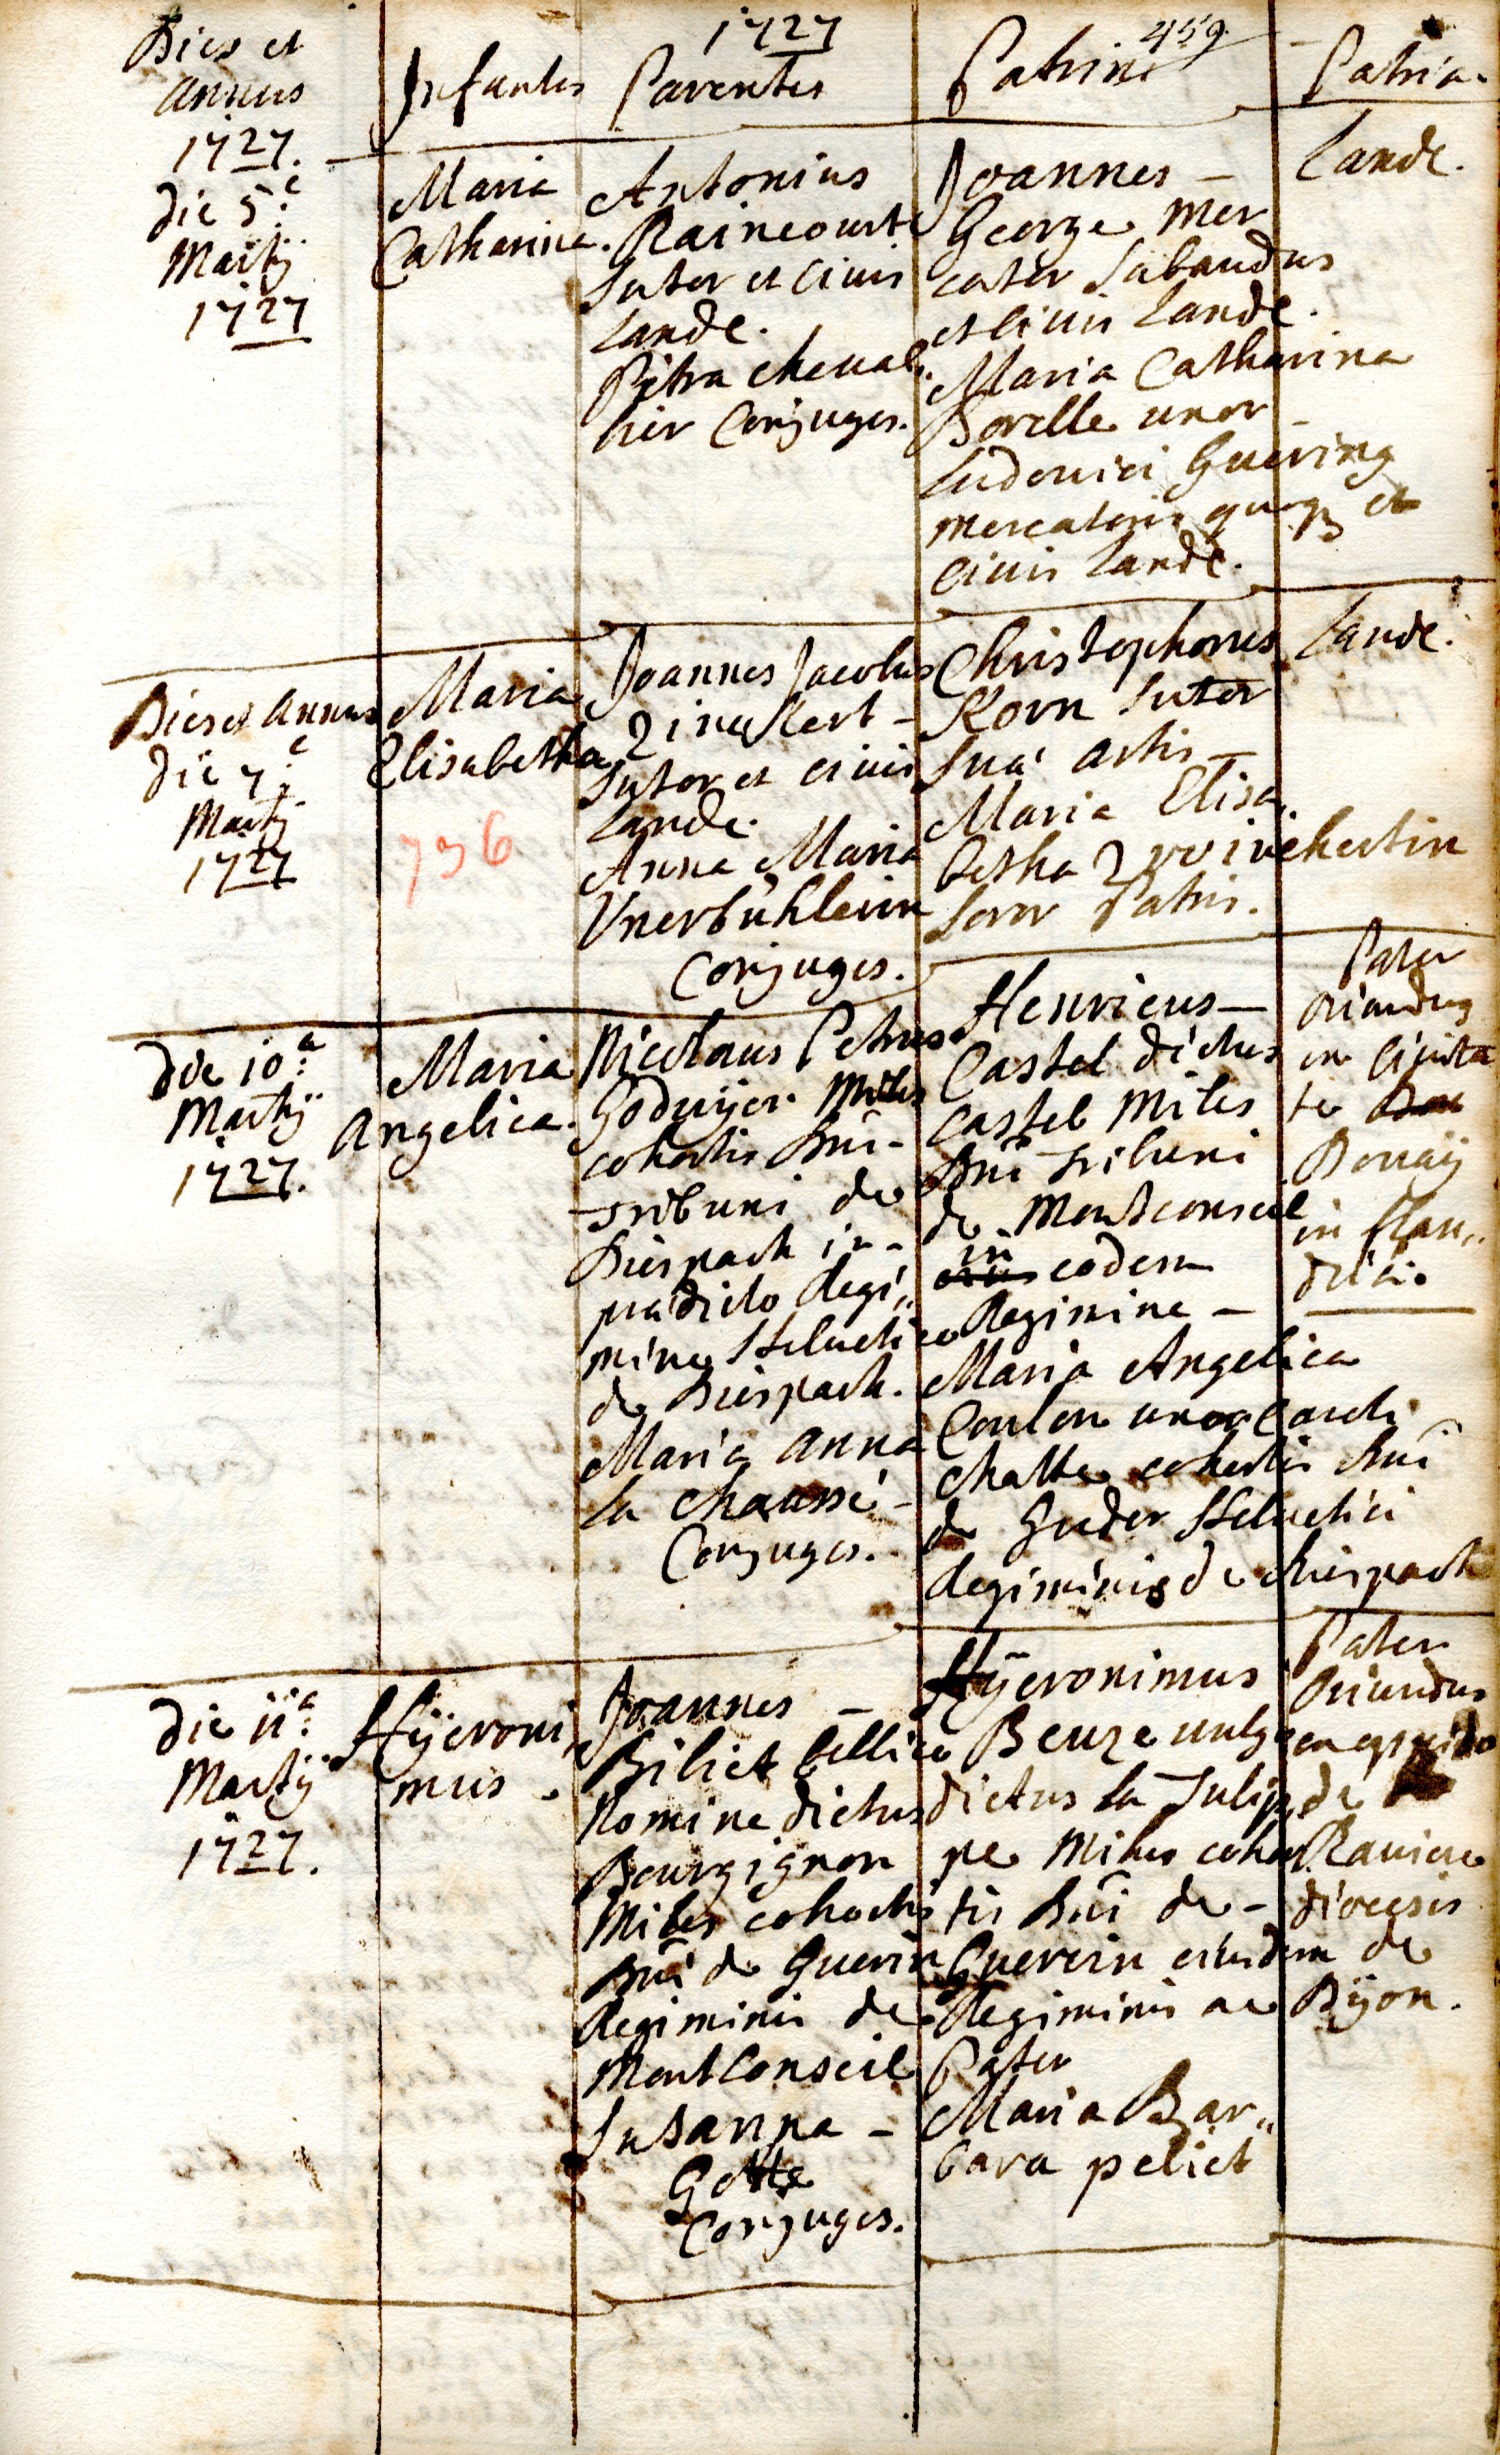 1727
459
Dies et
annus
1727.
Infantes
Parentes
Patrini
Patria.
die 5.a
Martij
1727
Maria
Catharina.
Antonius
Raincourt
sutor et civis
Landę.
Petra cheual„
lier Conjuges.
Joannes –
George mer
cator Sabaudus
et civis Landę.
Maria Catharina
Borelle uxor –
Ludovici Guering
mercatoris quoq3 et
civis Landę.
Landę.
Dies et annus
die 7.a
Martij
1727
Maria
Elisabetha
736
Joannes Jacobus
Zinckert –
sutor et civis
Landę.
Anna Maria
Vnerbühlerin
Conjuges.
Christophorus
Korn sutor
suæ artis –
Maria Elisa„
betha Zwinckertin
soror Patris.
Landę.
die 10.a
Martij
1727.
Maria
Angelica.
Nicolaus Petrus
Goduyer Miles
cohortis Dni –
Tribuni de
Diespach in –
prædicto Regi„
mine Helvetico
de Diespach.
Maria Anna
la chaussé –
Conjuges.
Henricus –
Castel dictus
castel Miles
Dni Tribuni
de Montconseil
in
eodem
Regimine –
Maria Angelica
Coulon uxor Caroli
chatte cohortis Dni
de Guder Helvetici
Regiminis de Diespach
Pater
oriundus
ex civita
te
Douaÿ
in flan„
dria.
die 11.a
Martij
1727.
Hÿeroni
mus.
Joannes –
Biliet bellico
Nomine dictus
Bourgignon
Miles cohortis
Dni de Guerin
Regiminis de
Montconseil
Susanna –
Gotte
Conjuges.
Hÿeronimus
Beuze vulgo
dictus la Tulip
pe Miles cohor
tis Dni de –
Guerin eiusdem
Regiminis ac
Pater
Maria Bar„
bara peliet
Pater
oriundus
ex oppido
de
Raviere
diocesis
de
Dijon.